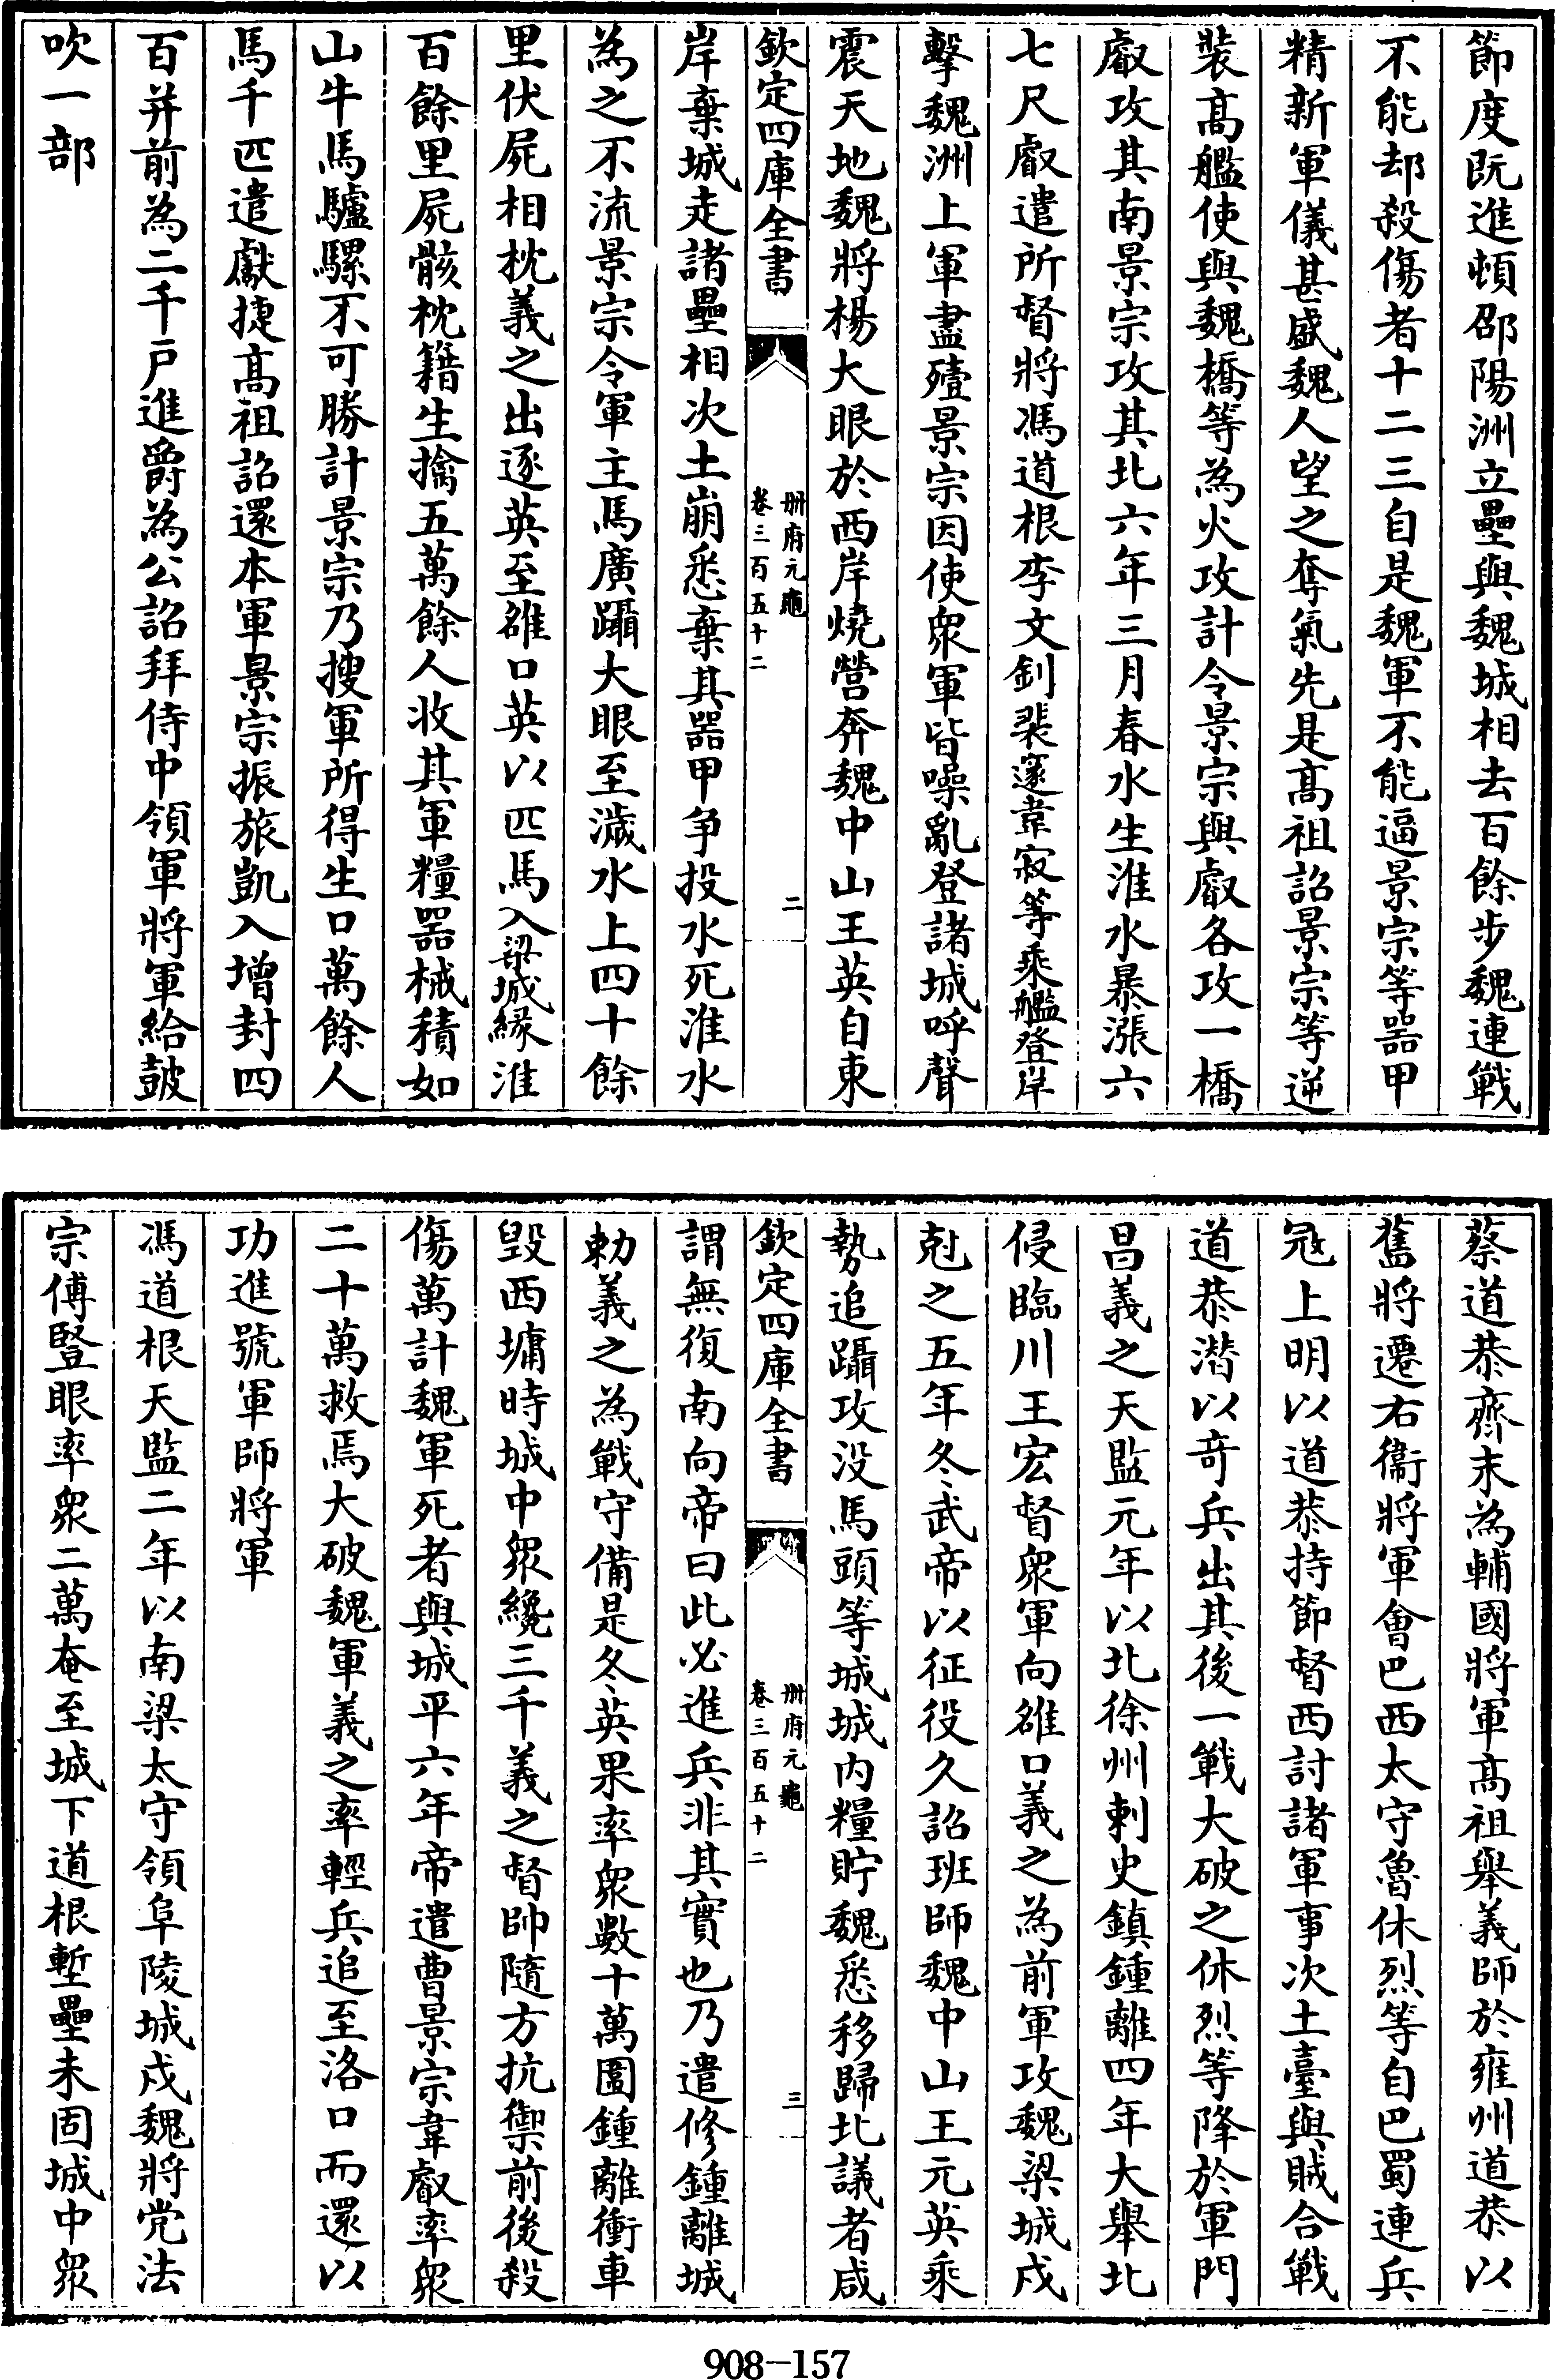 節度既進頓邵陽洲立壘與魏城相去百餘步魏連戰
不能却殺傷者十二三自是魏軍不能逼景宗等器甲
精新軍儀甚盛魏人望之奪氣先是髙祖詔景宗等逆
裝髙艦使與魏橋等為火攻計令景宗與叡各攻一橋
叡攻其南景宗攻其北六年三月春水生淮水暴漲六
七尺叡遣所督將馮道根李文釗裴邃韋寂等乘艦登岸
擊魏洲上軍盡殪景宗因使衆軍皆噪亂登諸城呼聲
震天地魏將楊大眼於西岸燒營奔魏中山王英自東
欽定四庫全書
冊府元龜
卷三百五十二
二
岸棄城走諸壘相次土崩悉棄其器甲爭投水死淮水
為之不流景宗令軍主馬廣躡大眼至濊水上四十餘
里伏屍相枕義之出逐英至雒口英以匹馬入梁城緣淮
百餘里屍骸枕籍生擒五萬餘人收其軍糧器械積如
山牛馬驢騾不可勝計景宗乃搜軍所得生口萬餘人
馬千匹遣獻捷髙祖詔還本軍景宗振旅凱入增封四
百并前為二千戶進爵為公詔拜侍中領軍將軍給鼓
吹一部
蔡道恭齊末為輔國將軍髙祖舉義師於雍州道恭以
舊將遷右衞將軍會巴西太守魯休烈等自巴蜀連兵
寇上明以道恭持節督西討諸軍事次土臺與賊合戰
道恭潛以竒兵出其後一戰大破之休烈等降於軍門
昌義之天監元年以北徐州刺史鎮鍾離四年大舉北
侵臨川王宏督衆軍向雒口義之為前軍攻魏梁城戍
尅之五年冬武帝以征役久詔班師魏中山王元英乘
勢追躡攻没馬頭等城城内糧貯魏悉移歸北議者咸
欽定四庫全書
冊府元龜
卷三百五十二
三
謂無復南向帝曰此必進兵非其實也乃遣修鍾離城
勅義之為戰守備是冬英果率衆數十萬圍鍾離衝車
毁西墉時城中衆纔三千義之督帥隨方抗禦前後殺
傷萬計魏軍死者與城平六年帝遣曹景宗韋叡率衆
二十萬救焉大破魏軍義之率輕兵追至洛口而還以
功進號軍師將軍
馮道根天監二年以南梁太守領阜陵城戍魏將党法
宗傅豎眼率衆二萬奄至城下道根塹壘未固城中衆
908-157